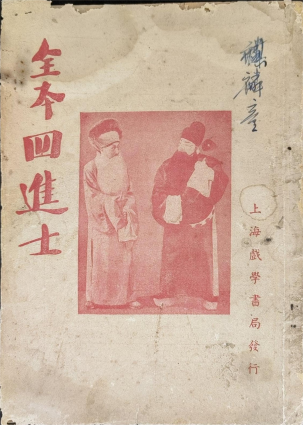 全本四進士
麒麟童
上海戲學書局發行